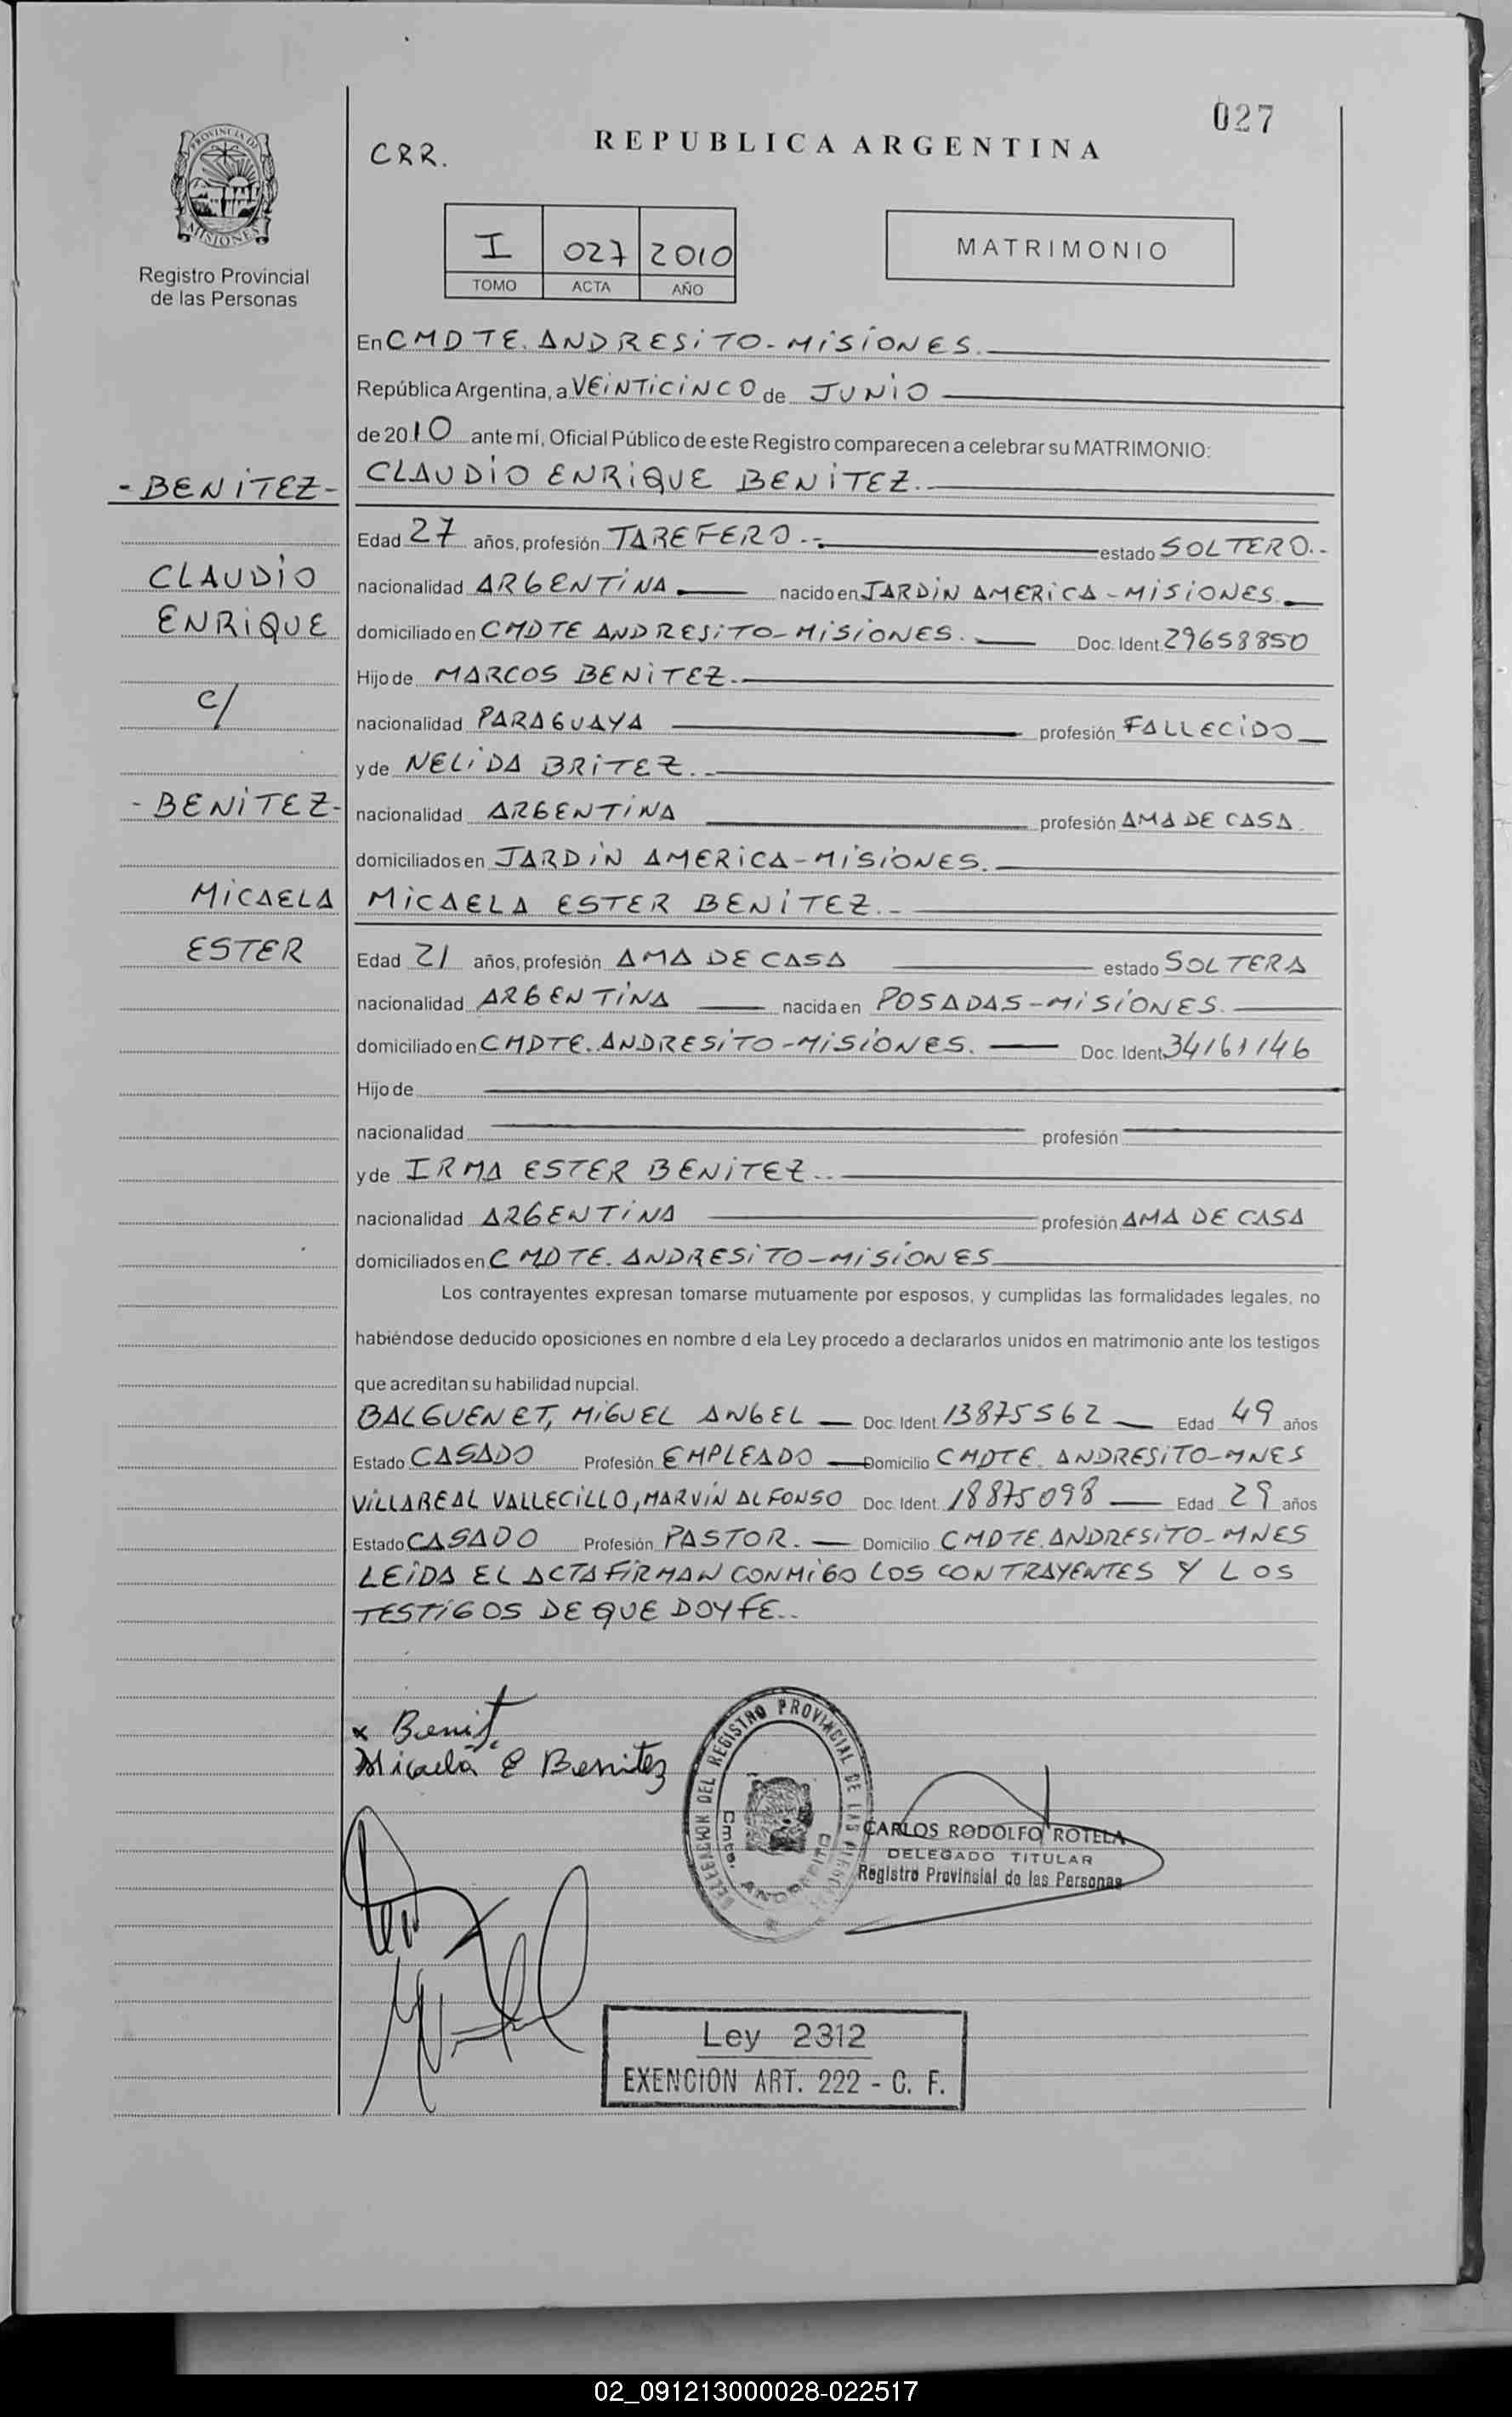 027
PROVINCIA DE
MISIONES
Registro Provincial
de las Personas
CRR.
REPUBLICA ARGENTINA
I 027 2010
TOMO ACTA AÑO
MATRIMONIO
En CMDTE. ANDRESITO - MISIONES.
República Argentina, a VEINTICINCO de JUNIO
de 2010 ante mí, Oficial Público de este Registro comparecen a celebrar su MATRIMONIO:
- BENITEZ -
CLAUDIO ENRIQUE BENITEZ.
Edad 27 años, profesión TAREFERO.- estado SOLTERO.-
CLAUDIO
nacionalidad ARGENTINA nacido en JARDIN AMERICA - MISIONES.
ENRIQUE
domiciliado en CMDTE ANDRESITO - MISIONES. Doc. Ident. 29658850
Hijo de MARCOS BENITEZ.
c/
nacionalidad PARAGUAYA profesión FALLECIDO
y de NELIDA BRITEZ..
- BENITEZ -
nacionalidad ARGENTINA profesión AMA DE CASA.
domiciliados en JARDIN AMERICA - MISIONES.
MICAELA
MICAELA ESTER BENITEZ..
ESTER
Edad 21 años, profesión AMA DE CASA estado SOLTERA
nacionalidad ARGENTINA nacida en POSADAS - MISIONES.
domiciliado en CMDTE. ANDRESITO - MISIONES. Doc. Ident. 34161146
Hijo de
nacionalidad profesión
y de IRMA ESTER BENITEZ..
nacionalidad ARGENTINA profesión AMA DE CASA
domiciliados en CMDTE. ANDRESITO - MISIONES
Los contrayentes expresan tomarse mutuamente por esposos, y cumplidas las formalidades legales, no
habiéndose deducido oposiciones en nombre d ela Ley procedo a declararlos unidos en matrimonio ante los testigos
que acreditan su habilidad nupcial.
BALGUENET, MIGUEL ANGEL Doc. Ident. 13875562 Edad 49 años
Estado CASADO Profesión EMPLEADO Domicilio CMDTE. ANDRESITO - MNES
VILLAREAL VALLECILLO, MARVIN ALFONSO Doc. Ident. 18875098 Edad 29 años
Estado CASADO Profesión PASTOR. Domicilio CMDTE. ANDRESITO - MNES
LEIDA EL ACTA FIRMAN CONMIGO LOS CONTRAYENTES Y LOS
TESTIGOS DE QUE DOY FE..
x Benit.
Micaela E Benitez
DELEGACION DEL REGISTRO PROVINCIAL DE LAS
Cmte. ANDRESITO
CARLOS RODOLFO ROTELA
DELEGADO TITULAR
Registro Provincial de las Personas
Ley 2312
EXENCION ART. 222 - C. F.
02_091213000028-022517